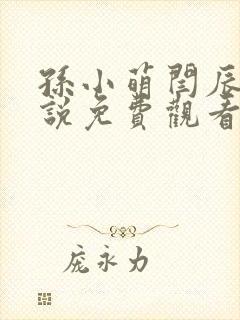 孫小萌閆辰
說免費觀看
庞永力